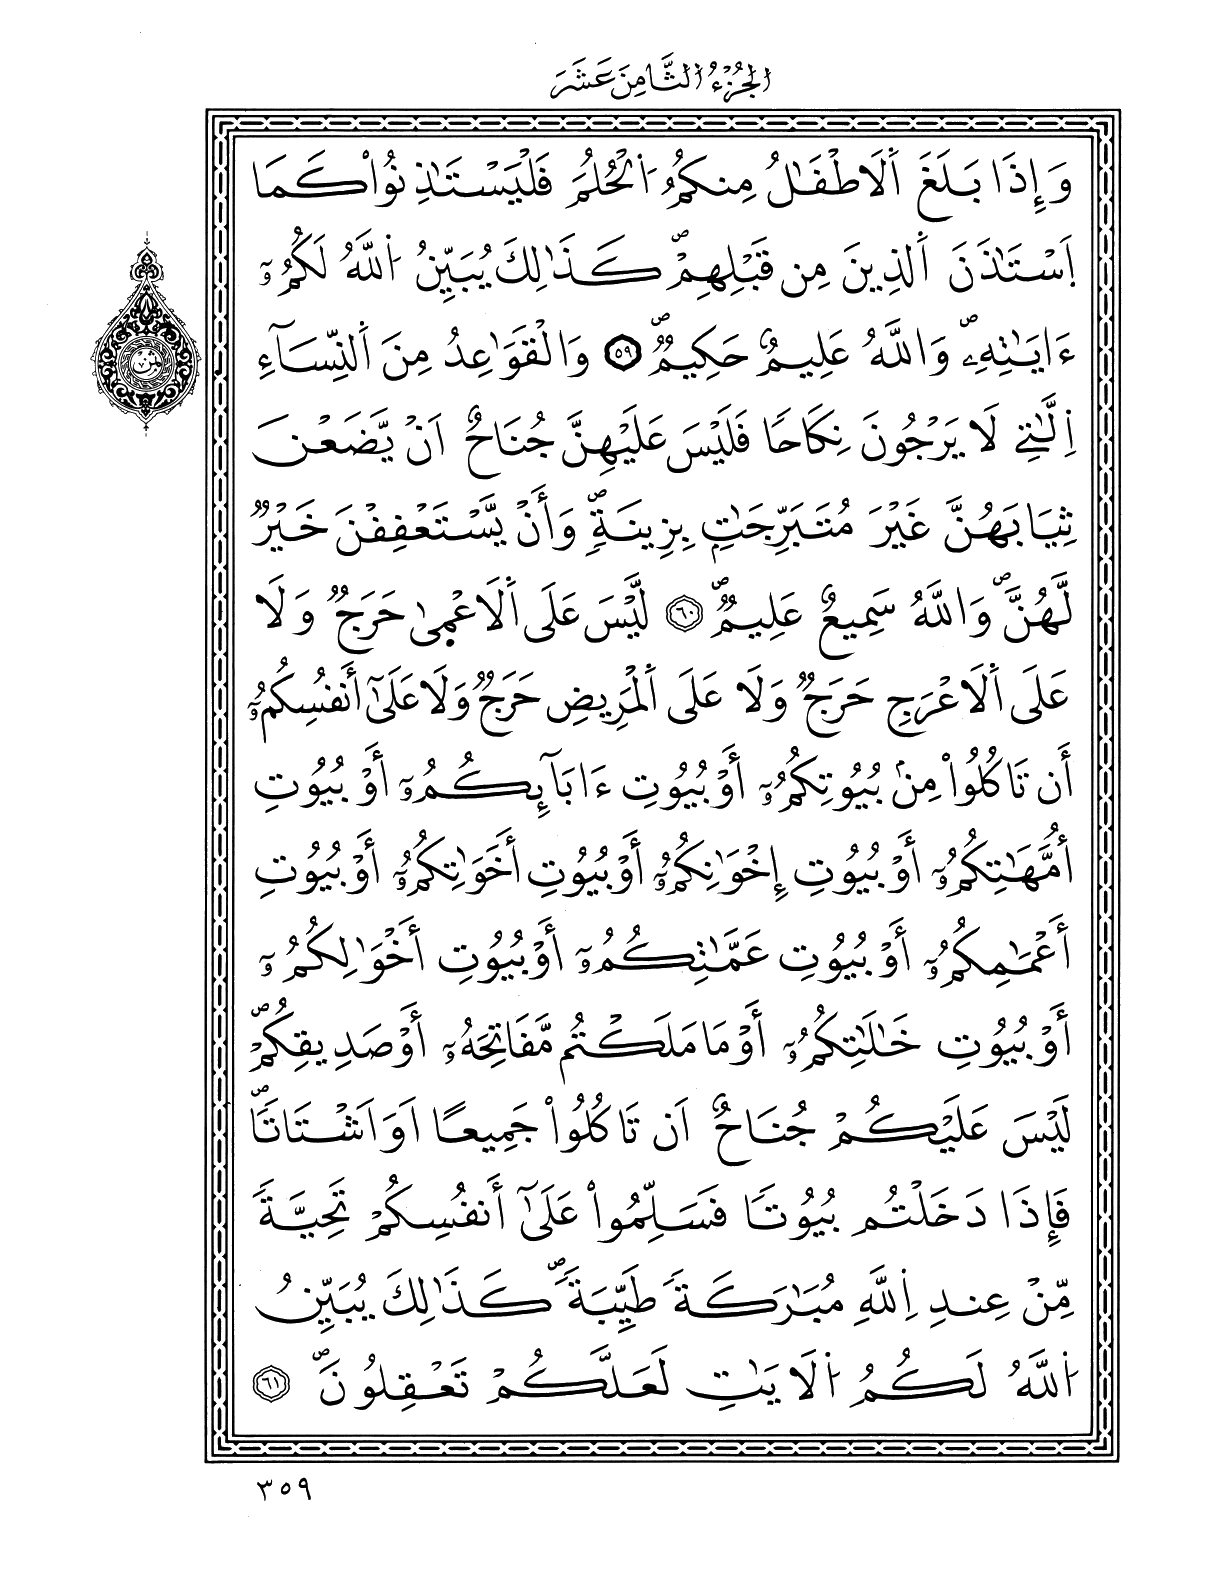 الجُزْءُ الثَّامِنَ عَشَرَ
وَإِذَا بَلَغَ اَ۬لَاطْفَٰلُ مِنكُمُ اُ۬لْحُلُمَ فَلْيَسْتَٰذِنُواْ كَمَا
اَ۪سْتَٰذَنَ اَ۬لذِينَ مِن قَبْلِهِمْۖ كَذَٰلِكَ يُبَيِّنُ اُ۬للَّهُ لَكُمُۥٓ
ءَايَٰتِهِۦۖ وَاللَّهُ عَلِيمٌ حَكِيمٌۖ ٥٩ وَالْقَوَٰعِدُ مِنَ اَ۬لنِّسَآءِ
اِ۬لَّٰتِے لَا يَرْجُونَ نِكَاحًا فَلَيْسَ عَلَيْهِنَّ جُنَاحٌ اَنْ يَّضَعْنَ
ثِيَابَهُنَّ غَيْرَ مُتَبَرِّجَٰتِۭ بِزِينَةٍۖ وَأَنْ يَّسْتَعْفِفْنَ خَيْرٌ
لَّهُنَّۖ وَاللَّهُ سَمِيعٌ عَلِيمٌۖ ٦٠ لَّيْسَ عَلَى اَ۬لَاعْم۪ىٰ حَرَجٌ وَلَا
عَلَى اَ۬لَاعْرَجِ حَرَجٌ وَلَا عَلَى اَ۬لْمَرِيضِ حَرَجٌ وَلَا عَلَىٰٓ أَنفُسِكُمُۥٓ
أَن تَاكُلُواْ مِنۢ بُيُوتِكُمُۥٓ أَوْ بُيُوتِ ءَابَآئِكُمُۥٓ أَوْ بُيُوتِ
أُمَّهَٰتِكُمُۥٓ أَوْ بُيُوتِ إِخْوَٰنِكُمُۥٓ أَوْ بُيُوتِ أَخَوَٰتِكُمُۥٓ أَوْ بُيُوتِ
أَعْمَٰمِكُمُۥٓ أَوْ بُيُوتِ عَمَّٰتِكُمُۥٓ أَوْ بُيُوتِ أَخْوَٰلِكُمُۥٓ
أَوْ بُيُوتِ خَٰلَٰتِكُمُۥٓ أَوْ مَا مَلَكْتُم مَّفَاتِحَهُۥٓ أَوْ صَدِيقِكُمْۖ
لَيْسَ عَلَيْكُمْ جُنَاحٌ اَن تَاكُلُواْ جَمِيعًا اَوَ اَشْتَاتاًۖ
فَإِذَا دَخَلْتُم بُيُوتاً فَسَلِّمُواْ عَلَىٰٓ أَنفُسِكُمْ تَحِيَّةً
مِّنْ عِندِ اِ۬للَّهِ مُبَٰرَكَةً طَيِّبَةًۖ كَذَٰلِكَ يُبَيِّنُ
اُ۬للَّهُ لَكُمُ اُ۬لَايَٰتِ لَعَلَّكُمْ تَعْقِلُونَۖ ٦١
ثمن
٣٥٩